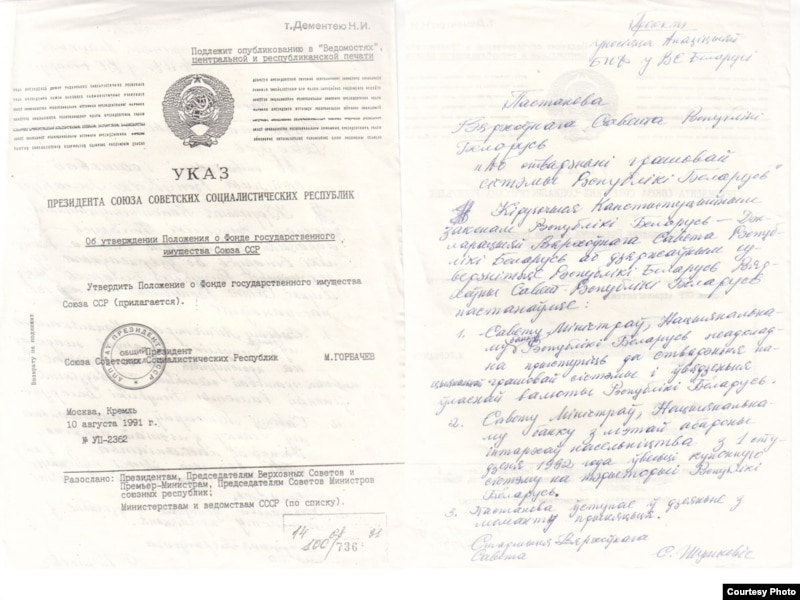 т.Дементею Н.И.
Подлежит опубликованию в "Ведомостях",
центральной и республиканской печати
УКАЗ
ПРЕЗИДЕНТА СОЮЗА СОВЕТСКИХ СОЦИАЛИСТИЧЕСКИХ РЕСПУБЛИК
Об утверждении Положения о Фонде государственного
имущества Союза ССР
Утвердить Положение о Фонде государственного имущества
Союза ССР (прилагается).
Возврату не подлежит
АППАРАТ ПРЕЗИДЕНТА СССР
ОБЩИЙ
Президент
Союза Советских Социалистических Республик М.ГОРБАЧЕВ
Москва, Кремль
10 августа 1991 г.
№ УП-2362
Разослано: Президентам, Председателям Верховных Советов и
Премьер-Министрам, Председателям Советов Министров
союзных республик;
Министерствам и ведомствам СССР (по списку).
736
Праект
Апазіцыяй
БНФ у ВС Беларусі
Пастанова
Вярхоўнага Савета Рэспублікі
Беларусь
"Аб стварэнні грашовай
сістэмы Рэспублікі Беларусь"
Кіруючыся Канстытуцыйным
Законам Рэспублікі Беларусь — Дэк-
ларацыяй Вярхоўнага Савета Рэспуб-
лікі Беларусь аб дзяржаўным су-
верэнітэце Рэспублікі Беларусь Вяр-
хоўны Савет Рэспублікі Беларусь
пастанаўляе:
1. Савету Міністраў, Нацыянальна-
му банку Рэспублікі Беларусь неадклад-
на прыступіць да стварэння на-
цыянальнай грашовай сістэмы і ўвядзення
ўласнай валюты Рэспублікі Беларусь.
2. Савету Міністраў, Нацыянальна-
му банку з мэтай абароны
інтарэсаў насельніцтва з 1 сту-
дзеня 1992 года ўвесці купонную
сістэму на тэрыторыі Рэспублікі
Беларусь.
3. Пастанова ўступае ў дзеянне з
моманту прыняцця.
Старшыня Вярхоўнага
Савета С. Шушкевіч
Courtesy Photo